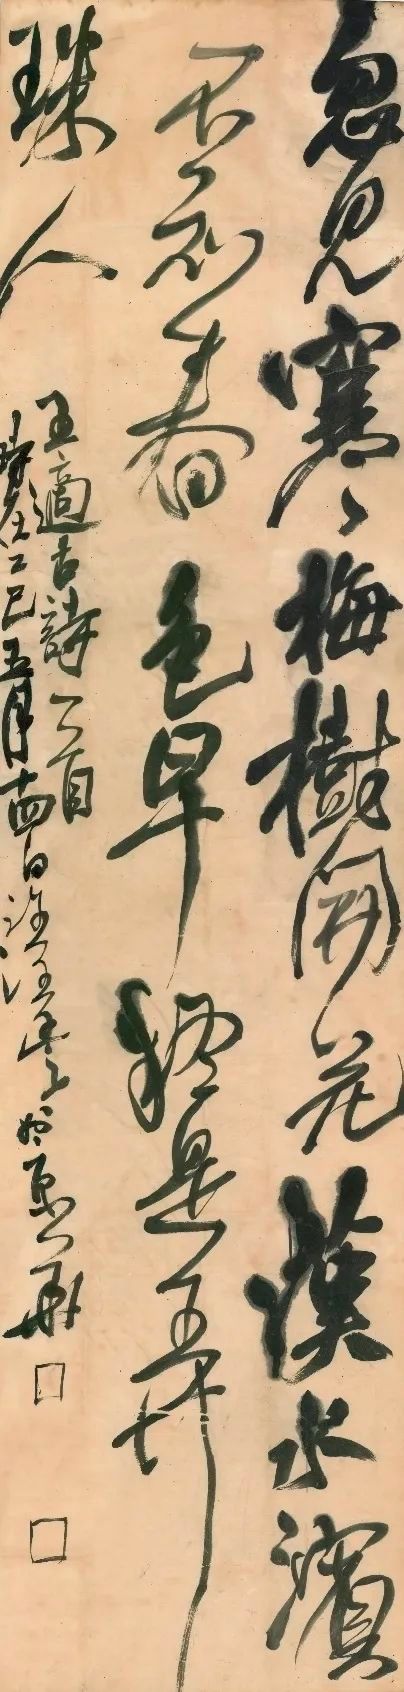 忽見寒梅樹開花漢水濱
不知春色早疑是弄
珠人
王適古詩一首
時在乙巳五月十四日於京華